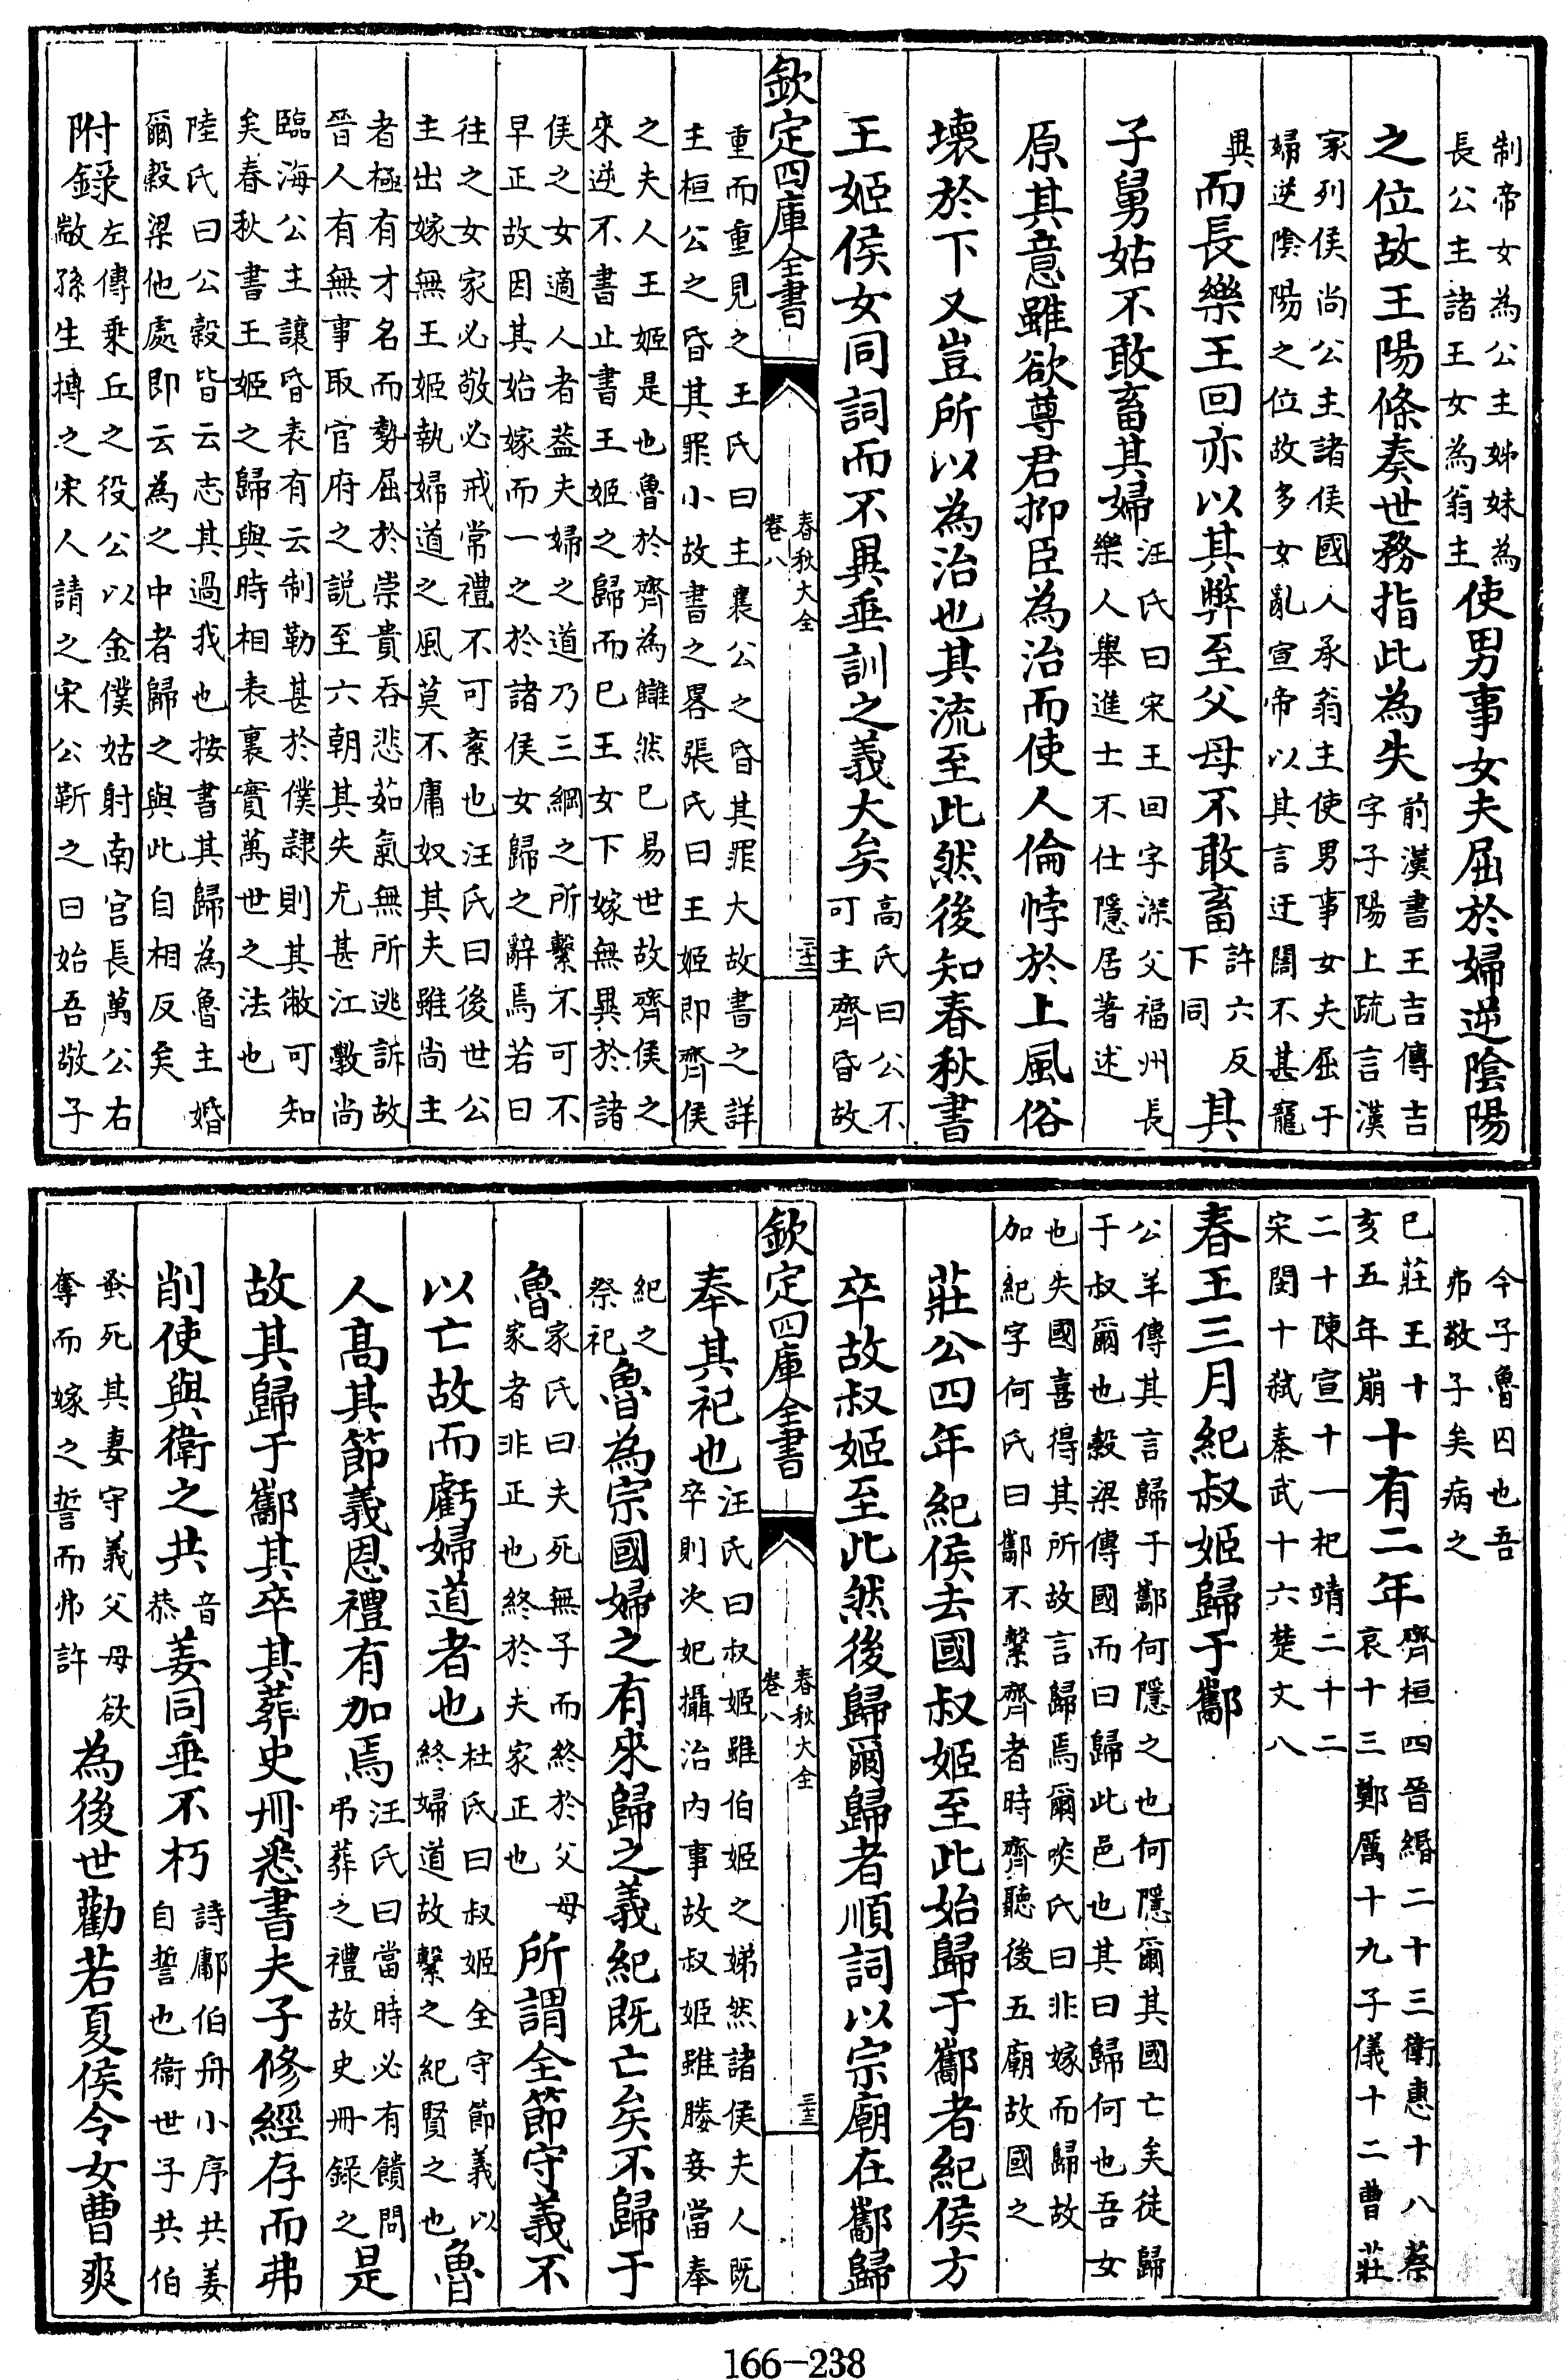 制帝女為公主姊妹為長公主諸王女為翁主使男事女夫屈於婦逆陰陽
之位故王陽條奏世務指此為失前漢書王吉傳吉字子陽上疏言漢
家列侯尚公主諸侯國人承翁主使男事女夫屈于婦逆陰陽之位故多女亂宣帝以其言迂闊不甚寵
異而長樂王回亦以其弊至父母不敢畜許六反下同其
子舅姑不敢畜其婦汪氏曰宋王回字深父福州長樂人舉進士不仕隱居著述
原其意雖欲尊君抑臣為治而使人倫悖於上風俗
壞於下又豈所以為治也其流至此然後知春秋書
王姬侯女同詞而不異垂訓之義大矣高氏曰公不可主齊昏故
欽定四庫全書
春秋大全
卷八
重而重見之王氏曰主襄公之昏其罪大故書之詳主桓公之昏其罪小故書之畧張氏曰王姬即齊侯
之夫人王姬是也魯於齊為讎然已易世故齊侯之來逆不書止書王姬之歸而已王女下嫁無異於諸
侯之女適人者葢夫婦之道乃三綱之所繫不可不早正故因其始嫁而一之於諸侯女歸之辭焉若曰
往之女家必敬必戒常禮不可紊也汪氏曰後世公主出嫁無王姬執婦道之風莫不庸奴其夫雖尚主
者極有才名而勢屈於崇貴吞悲茹氣無所逃訴故晉人有無事取官府之説至六朝其失尤甚江斆尚
臨海公主讓昏表有云制勒甚於僕隷則其敝可知矣春秋書王姬之歸與時相表裏實萬世之法也
陸氏曰公穀皆云志其過我也按書其歸為魯主婚爾穀梁他處即云為之中者歸之與此自相反矣
附錄左傳乗丘之役公以金僕姑射南宫長萬公右歂孫生搏之宋人請之宋公靳之曰始吾敬子
今子魯囚也吾弗敬子矣病之
己莊王十亥五年崩十有二年齊桓四晉緡二十三衛惠十八蔡哀十三鄭厲十九子儀十二曹莊
二十陳宣十一杞靖二十二宋閔十弑秦武十六楚文八
春王三月紀叔姬歸于酅
公羊傳其言歸于酅何隱之也何隱爾其國亡矣徒歸于叔爾也穀梁傳國而曰歸此邑也其曰歸何也吾女
也失國喜得其所故言歸焉爾啖氏曰非嫁而歸故加紀字何氏曰酅不繫齊者時齊聽後五廟故國之
莊公四年紀侯去國叔姬至此始歸于酅者紀侯方
卒故叔姬至此然後歸爾歸者順詞以宗廟在酅歸
欽定四庫全書
春秋大全
卷八
奉其祀也汪氏曰叔姬雖伯姬之娣然諸侯夫人既卒則次妃攝治内事故叔姬雖媵妾當奉
紀之祭祀魯為宗國婦之有來歸之義紀既亡矣不歸于
魯家氏曰夫死無子而終於父母家者非正也終於夫家正也所謂全節守義不
以亡故而虧婦道者也杜氏曰叔姬全守節義以終婦道故繫之紀賢之也魯
人高其節義恩禮有加焉汪氏曰當時必有饋問弔葬之禮故史冊錄之是
故其歸于酅其卒其葬史冊悉書夫子修經存而弗
削使與衛之共音恭姜同垂不朽詩鄘伯舟小序共姜自誓也衛世子共伯
蚤死其妻守義父母欲奪而嫁之誓而弗許為後世勸若夏侯令女曹爽
166-238